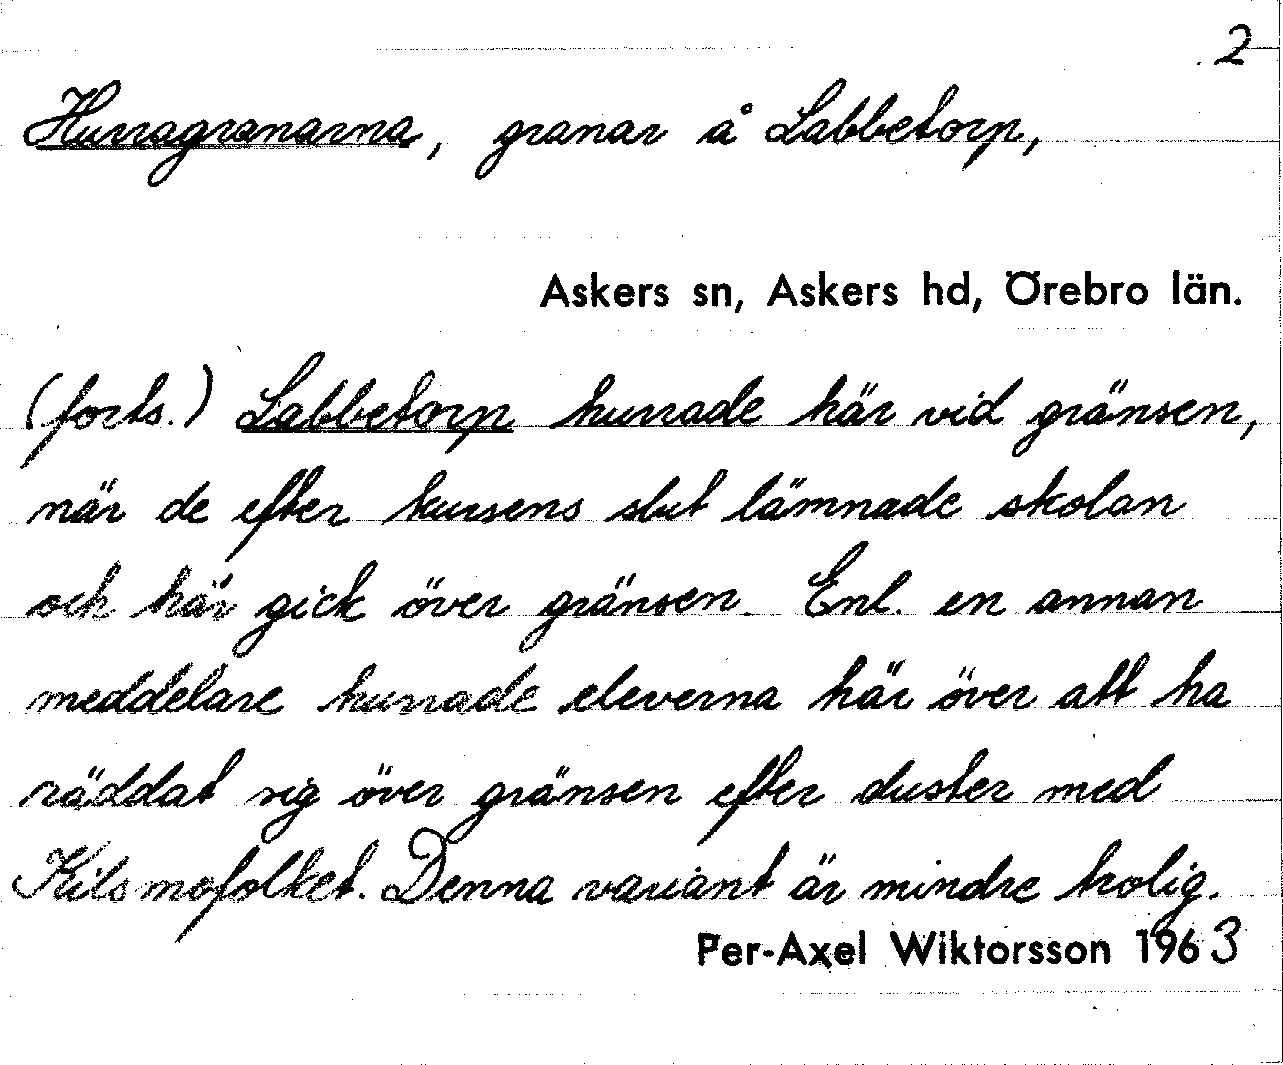 2
Hurragranarna, granar å Labbetorp,
Askers sn, Askers hd, Örebro län.
(forts.) Labbetorp hurrade här vid gränsen,
när de efter kursens slut lämnade skolan
och här gick över gränsen. Enl. en annan
meddelare hurrade eleverna här över att ha
räddat sig över gränsen efter duster med
Kilsmofolket. Denna variant är mindre trolig.
Per-Axel Wiktorsson 1963